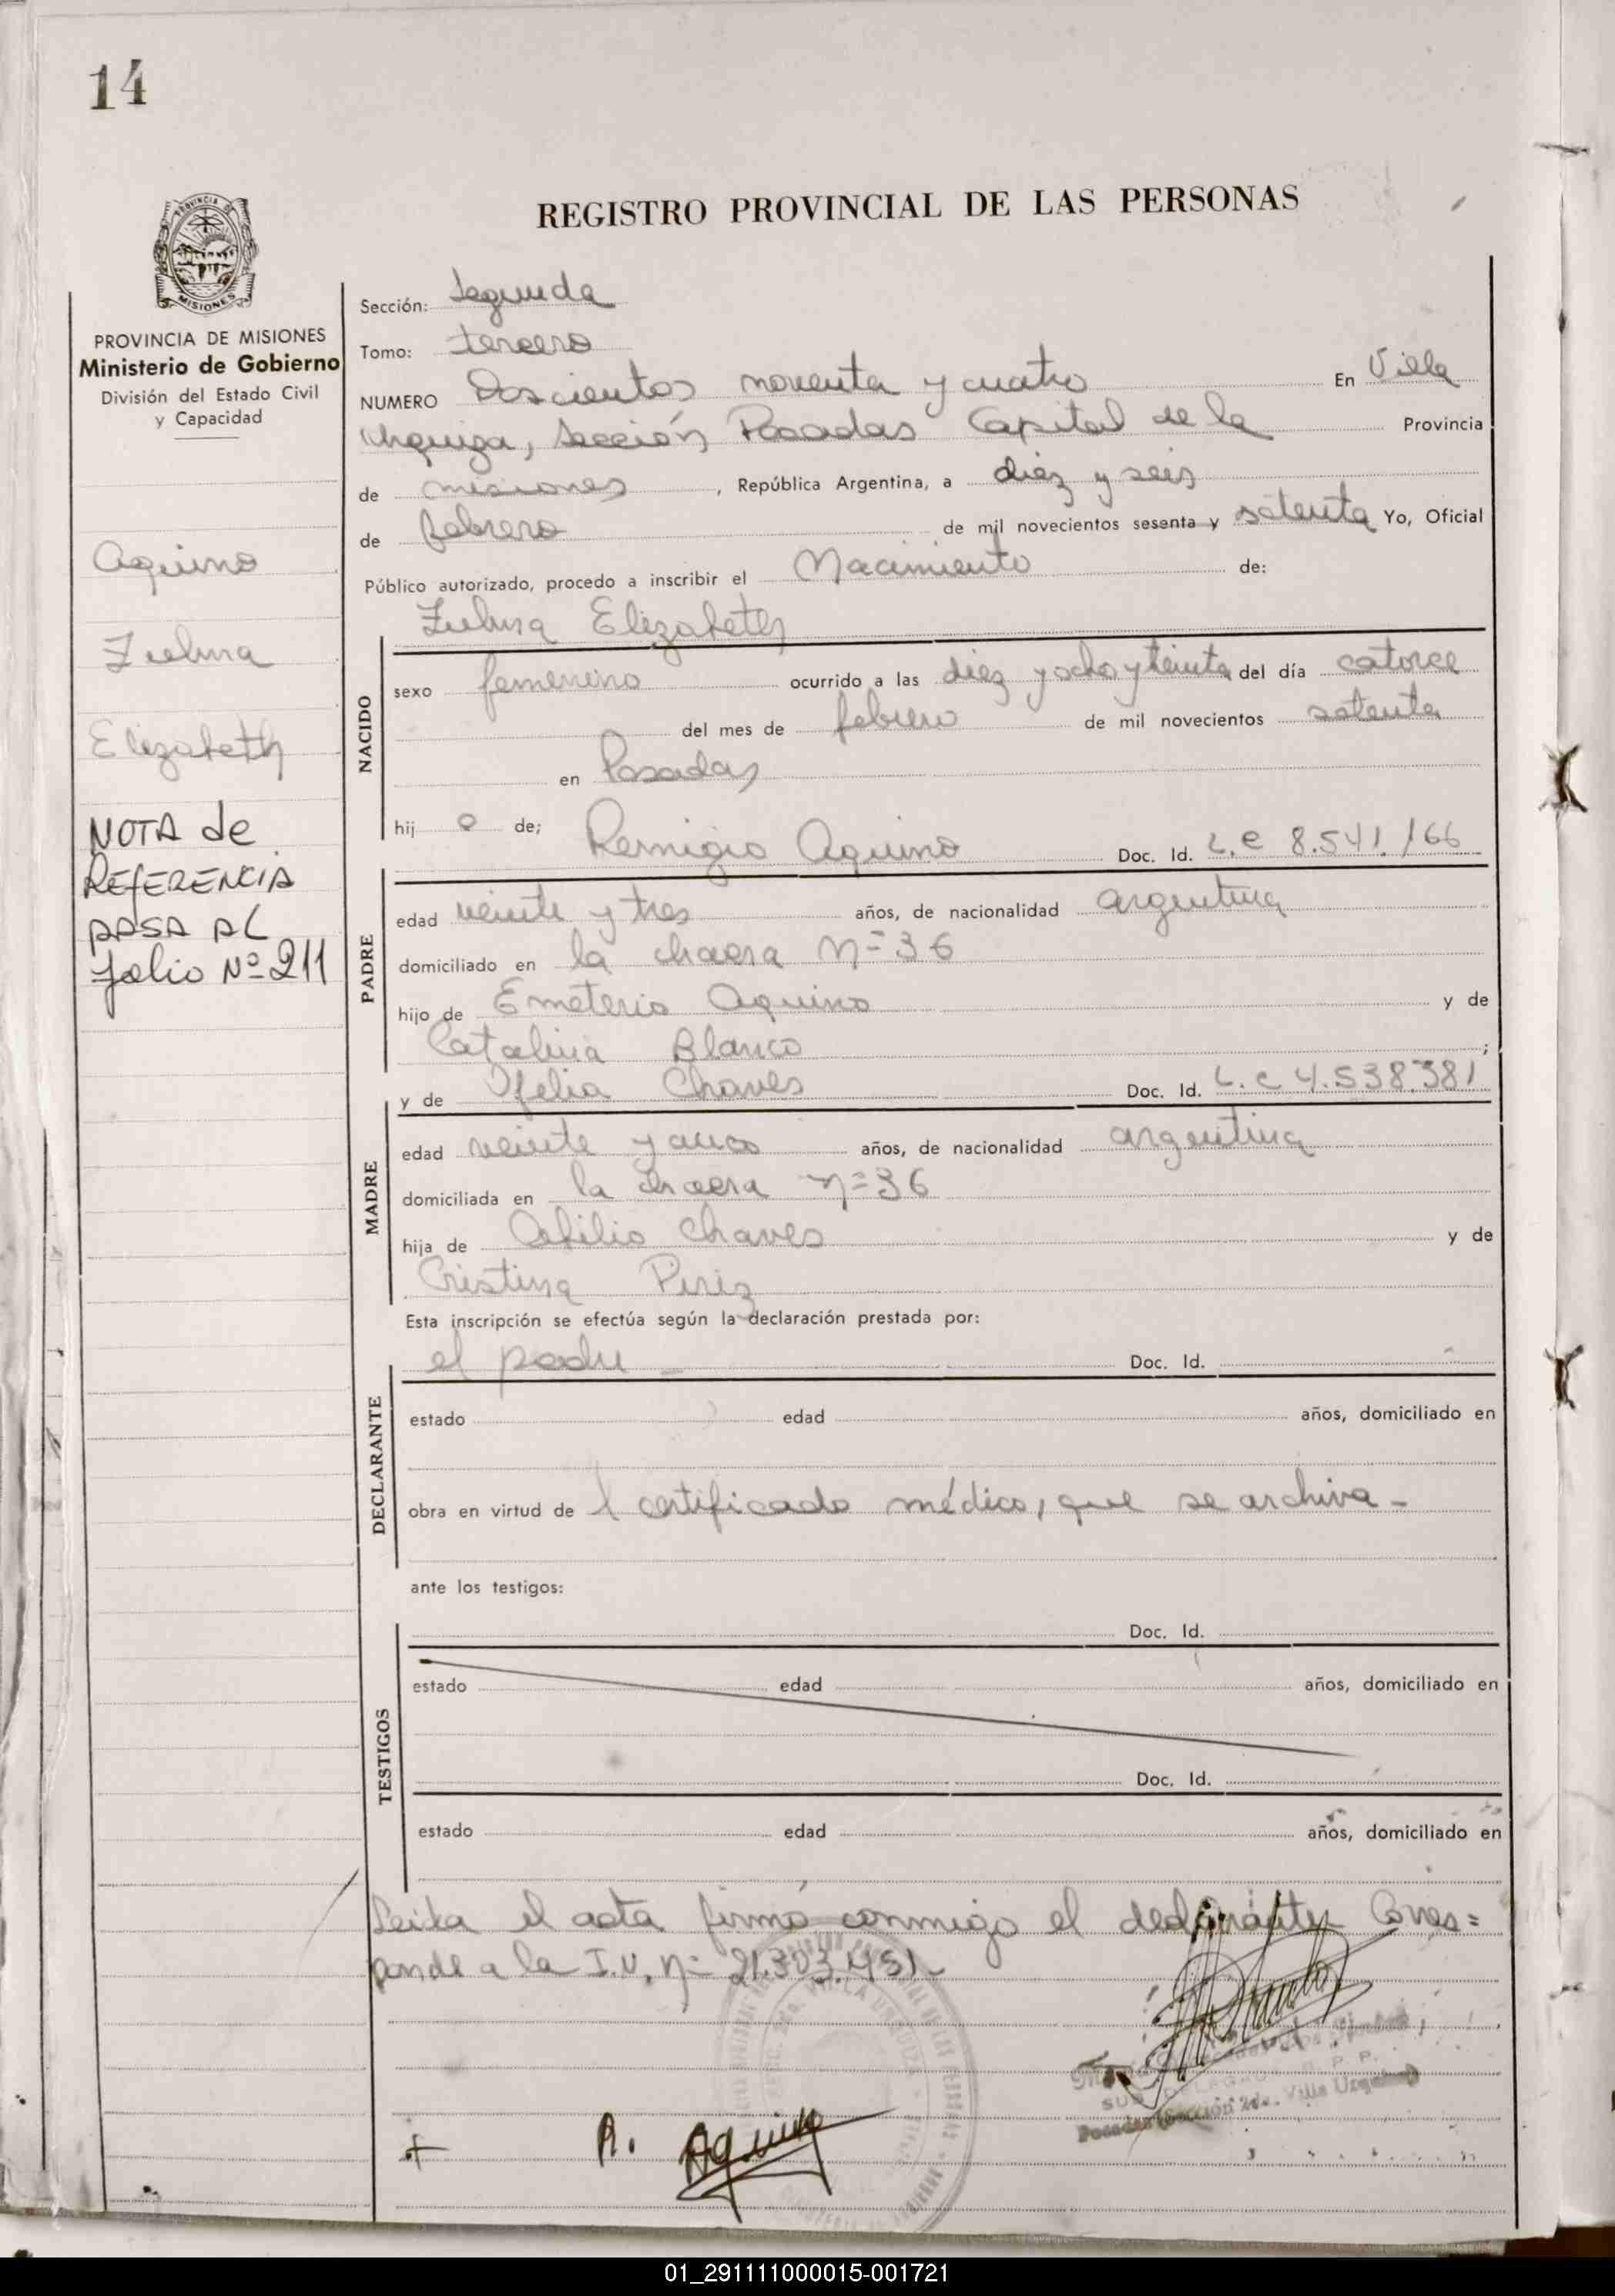 14
REGISTRO PROVINCIAL DE LAS PERSONAS
PROVINCIA DE
MISIONES
PROVINCIA DE MISIONES
Ministerio de Gobierno
División del Estado Civil
y Capacidad
Aquino
Zulma
Elizabeth
NOTA de
REFERENCIA
PASA AL
folio Nº 211
Sección: Segunda
Tomo: tercero
NUMERO Doscientos noventa y cuatro En Villa
Urquiza, Sección Posadas Capital de la Provincia
de misiones, República Argentina, a diez y seis
de febrero de mil novecientos sesenta y setenta Yo, Oficial
Público autorizado, procedo a inscribir el Nacimiento de:
Zulma Elizabeth
NACIDO
sexo femenino ocurrido a las diez y ocho y treinta del día catorce
del mes de febrero de mil novecientos setenta
en Posadas
hij a de; Remigio Aquino Doc. Id. L.E 8.541.166
PADRE
edad veinte y tres años, de nacionalidad argentina
domiciliado en la chacra Nº 36
hijo de Emeterio Aquino y de
Catalina Blanco ;
y de Ofelia Chaves Doc. Id. L.C 4.538.381
MADRE
edad veinte y años, de nacionalidad argentina
domiciliada en la chacra nº 36
hija de Chaves y de
Cristina Piriz
Esta inscripción se efectúa según la declaración prestada por:
el padre - Doc. Id.
DECLARANTE
estado edad años, domiciliado en
obra en virtud de l certificado médico, que se archiva -
ante los testigos:
Doc. Id.
TESTIGOS
estado edad años, domiciliado en
Doc. Id.
estado edad años, domiciliado en
Leída el acta firmó conmigo el declarante. Corres=
ponde a la I.U. nº 21.303.451-
Posadas (Sección 2da. Villa Urquiza)
A. Aquino
01_291111000015-001721